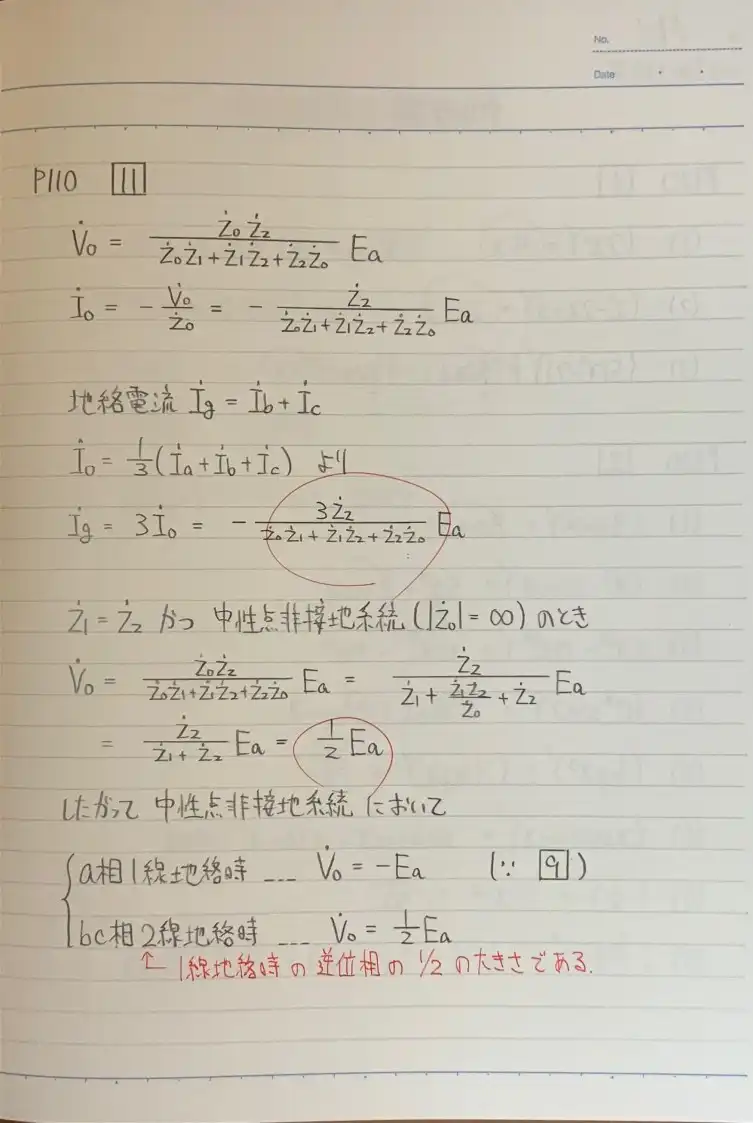 No.
Date
P110 11
V̇₀ = Ż₀Ż₂ / (Ż₀Ż₁ + Ż₁Ż₂ + Ż₂Ż₀) Ea
İ₀ = - V̇₀/Ż₀ = - Ż₂ / (Ż₀Ż₁ + Ż₁Ż₂ + Ż₂Ż₀) Ea
地絡電流 İg = İb + İc
İ₀ = 1/3 (İa + İb + İc) より
İg = 3İ₀ = - 3Ż₂ / (Ż₀Ż₁ + Ż₁Ż₂ + Ż₂Ż₀) Ea
Ż₁ = Ż₂ かつ 中性点非接地系統 (|Ż₀| = ∞) のとき
V̇₀ = Ż₀Ż₂ / (Ż₀Ż₁ + Ż₁Ż₂ + Ż₂Ż₀) Ea = Ż₂ / (Ż₁ + Ż₁Ż₂/Ż₀ + Ż₂) Ea
= Ż₂ / (Ż₁ + Ż₂) Ea = 1/2 Ea
したがって 中性点非接地系統 において
a相1線地絡時 --- V̇₀ = -Ea (∵ 9)
bc相2線地絡時 --- V̇₀ = 1/2 Ea
↑ 1線地絡時の逆位相の1/2の大きさである.